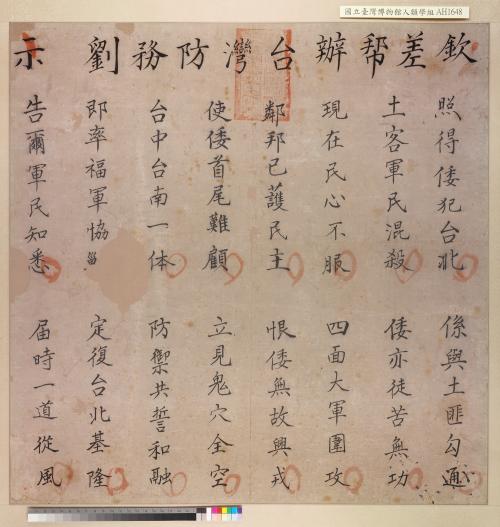 國立臺灣博物館人類學組 AH1648
欽差幫辦台灣防務劉示
照得倭犯台北 係與土匪勾通
土客軍民混殺 倭亦徒苦無功
現在民心不服 四面大軍圍攻
鄰邦已護民主 恨倭無故興戎
使倭首尾難顧 立見鬼穴全空
台中台南一体 防禦共誓和融
即率福軍協 定復台北基隆
告爾軍民知悉 届時一道從風